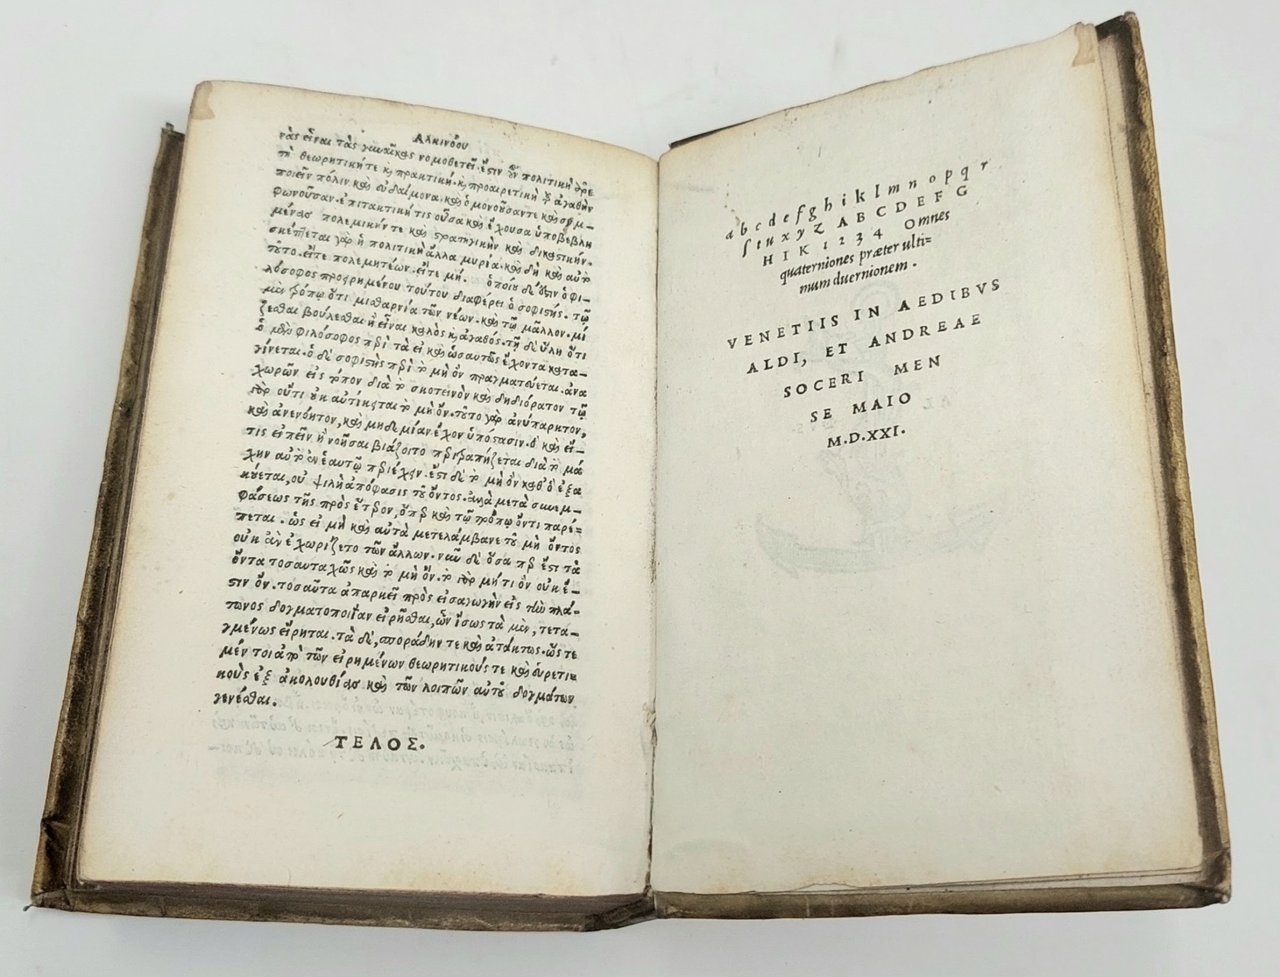 ΑΛΚΙΝΟΟΥ
νὰς εἶναι τὰς γυναῖκας νομοθετεῖ. ἔστιν οὖν πολιτικὴ ἀρε
τὴ θεωρητική τε κ πρακτική, κ προαιρετικὴ τοῦ ἀγαθὴν
ποιεῖν πόλιν καὶ εὐδαίμονα. καὶ ὁμονοοῦσάν τε καὶ συμ-
φωνοῦσαν. ἐπιτακτική τις οὖσα καὶ ἔχουσα ὑποβεβλη
μένας πολεμικήν τε καὶ στρατηγικὴν καὶ δικαστικήν.
σκέπτεται γὰρ ἡ πολιτικὴ ἄλλα μυρία. καὶ δὴ καὶ αὐτὸ
τοῦτο. εἴτε πολεμητέων. εἴτε μή. ὁποῖος δέ ἐστιν ὁ φι-
λόσοφος προειρημένου τούτου διαφέρει ὁ σοφιστής. τῷ
μὲν τρόπῳ ὅτι μισθαρνεῖ τῶν νέων. καὶ τῷ μᾶλλον
βούλεσθαι ἢ εἶναι καλὸς κ ἀγαθός. τῇ δὲ ὕλῃ ὅτι
ὁ μὲν φιλόσοφος περὶ τὰ ἀεὶ καὶ ὡσαύτως ἔχοντα κατα-
γίνεται. ὁ δὲ σοφιστὴς περὶ τὸ μὴ ὂν πραγματεύεται. ἀνα
χωρῶν εἰς τόπον διὰ τὸ σκοτεινὸν καὶ δηδιόρατον. τῷ
γὰρ ὄντι οὐκ ἀντίκειται τὸ μὴ ὄν. τοῦτο γὰρ ἀνύπαρκτον,
καὶ ἀνενόητον, καὶ μηδεμίαν ἔχον ὑπόστασιν. ὃ καὶ εἴ-
τις εἰπεῖν ἢ νοῆσαι βιάζοιτο περιτραπήσεται διὰ τὸ μά
χην αὐτὸ ἐν ἑαυτῷ περιέχειν. ἔστι δὲ τὸ μὴ ὂν καθ' ὃ ἐξα
κούεται, οὐ ψιλὴ ἀπόφασις τοῦ ὄντος. ἀλλὰ μετὰ συνεμ-
φάσεως τῆς πρὸς ἕτερον, ὅπερ καὶ τῷ πρώτῳ ὄντι παρέ-
πεται. ὡς εἰ μὴ καὶ αὐτὰ μετελάμβανε τοῦ μὴ ὄντος
οὐκ ἂν ἐχωρίζετο τῶν ἄλλων. νῦν δὲ ὅσα περ ἔστι τὰ
ὄντα τοσαυταχῶς καὶ τὸ μὴ ὄν. τὸ γὰρ μή τι ὂν οὐκ ἔ-
στιν ὄν. τοσαῦτα ἀπαρκεῖ πρὸς εἰσαγωγὴν εἰς τὴν πλά-
τωνος δογματοποιΐαν εἰρῆσθαι, ὧν ἴσως τὰ μὲν, τετα-
γμένως εἴρηται. τὰ δὲ, σποράδην τε καὶ ἀτάκτως. ὥς τε
μέν τοι ἀπὸ τῶν εἰρημένων θεωρητικούς τε καὶ εὑρετι-
κοὺς ἐξ ἀκολουθίας καὶ τῶν λοιπῶν αὐτοῦ δογμάτων
γενέσθαι.
ΤΕΛΟΣ.
a b c d e f g h i k l m n o p q r
ſ t u x y z A B C D E F G
H I K 1 2 3 4 Omnes
quaterniones præter ulti=
mum duernionem.
VENETIIS IN AEDIBVS
ALDI, ET ANDREAE
SOCERI MEN
SE MAIO
M.D.XXI.